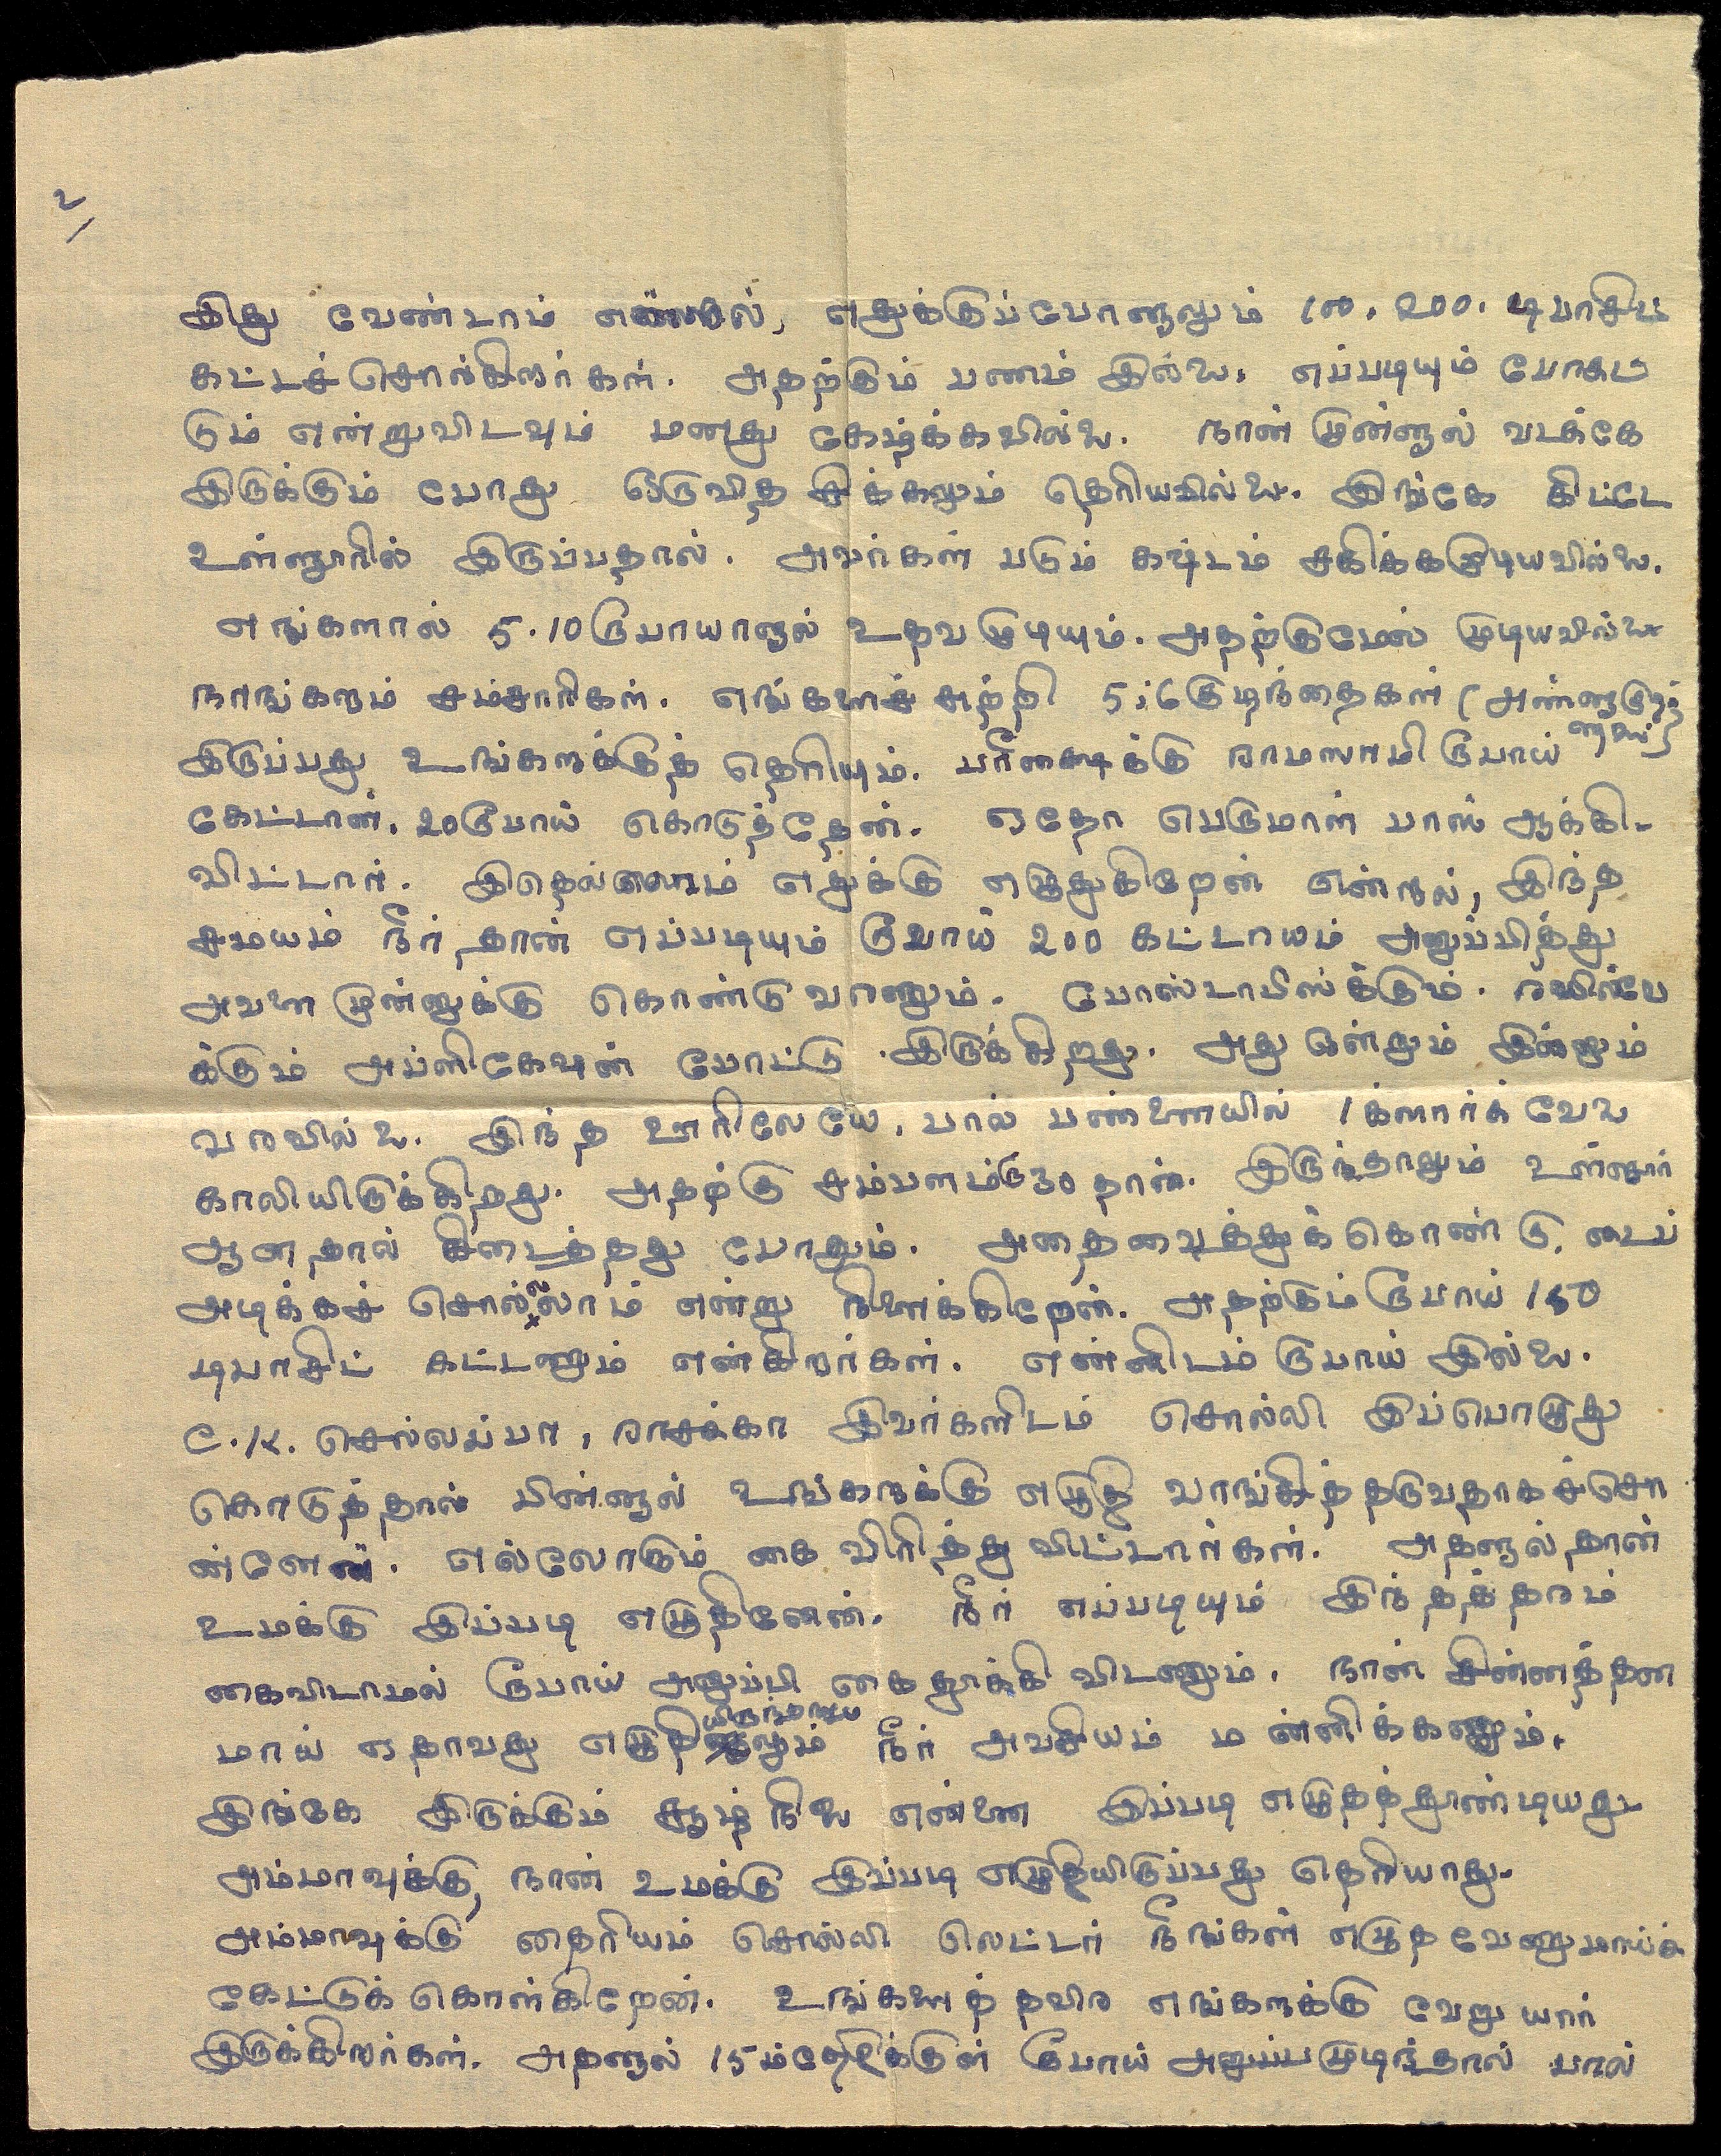 2/
இது வேண்டாம் என்றால், எதுக்குப்போனாலும் 100. 200. டிபாசிட்
கட்டச் சொல்கிறார்கள். அதற்கும் பணம் இல்லை. எப்படியும் போகட்
டும் என்றுவிடவும் மனது கேழ்க்கவில்லை. நான் முன்னால் வடக்கே
இருக்கும் போது ஒருவித சிக்கலும் தெரியவில்லை. இங்கே கிட்டே
உள்ளூரில் இருப்பதால். அவர்கள் படும் கஷ்டம் சகிக்கமுடியவில்லை.
எங்களால் 5.10 ரூபாயானால் உதவ முடியும். அதற்குமேல் முடியவில்லை
நாங்களும் சம்சாரிகள். எங்களைச் சுற்றி 5,6 குழந்தைகள் (அண்ணாகுழந்
தைகள்)
இருப்பது உங்களுக்குத் தெரியும். பரீக்ஷைக்கு ராமஸாமி ரூபாய்
கேட்டான். 20 ரூபாய் கொடுத்தேன். ஏதோ பெருமாள் பாஸ் ஆக்கி-
விட்டார். இதெல்லாம் எதுக்கு எழுதுகிறேன் என்றால், இந்த
சமயம் நீர் தான் எப்படியும் ரூபாய் 200 கட்டாயம் அனுப்பித்து
அவனை முன்னுக்கு கொண்டு வரணும். போஸ்டாபிஸ்க்கும். ரயில்வே
க்கும் அப்ளிகேஷன் போட்டு இருக்கிறது. அது ஒன்றும் இன்னும்
வரவில்லை. இந்த ஊரிலேயே, பால் பண்ணையில் 1 க்ளார்க் வேலை
காலியிருக்கிறது. அதற்கு சம்பளம் ரூ 30 தான். இருந்தாலும் உள்ளூர்
ஆனதால் கிடைத்தது போதும். அதைவைத்துக் கொண்டு, டைப்
அடிக்கச் சொல்லலாம் என்று நினைக்கிறேன். அதற்கும் ரூபாய் 150
டிபாசிட் கட்டணும் என்கிறார்கள். என்னிடம் ரூபாய் இல்லை.
C.K. செல்லப்பா, ராசக்கா இவர்களிடம் சொல்லி இப்பொழுது
கொடுத்தால் பின்னால் உங்களுக்கு எழுதி வாங்கித் தருவதாகச் சொ
ன்னேன். எல்லோரும் கை விரித்து விட்டார்கள். அதனால் தான்
உமக்கு இப்படி எழுதினேன். நீர் எப்படியும் இந்தத் தரம்
கைவிடாமல் ரூபாய் அனுப்பி கை தூக்கி விடணும். நான் சின்னத்தன
மாய் ஏதாவது எழுதியிருந்தாலும் நீர் அவசியம் மன்னிக்கணும்.
இங்கே இருக்கும் சூழ்நிலை என்னை இப்படி எழுதத் தூண்டியது
அம்மாவுக்கு, நான் உமக்கு இப்படி எழுதியிருப்பது தெரியாது.
அம்மாவுக்கு தைரியம் சொல்லி லெட்டர் நீங்கள் எழுத வேணுமாய்க்
கேட்டுக் கொள்கிறேன். உங்களைத் தவிர எங்களுக்கு வேறு யார்
இருக்கிறார்கள். அதனால் 15ம்தேதிக்குள் ரூபாய் அனுப்ப முடிந்தால் பால்